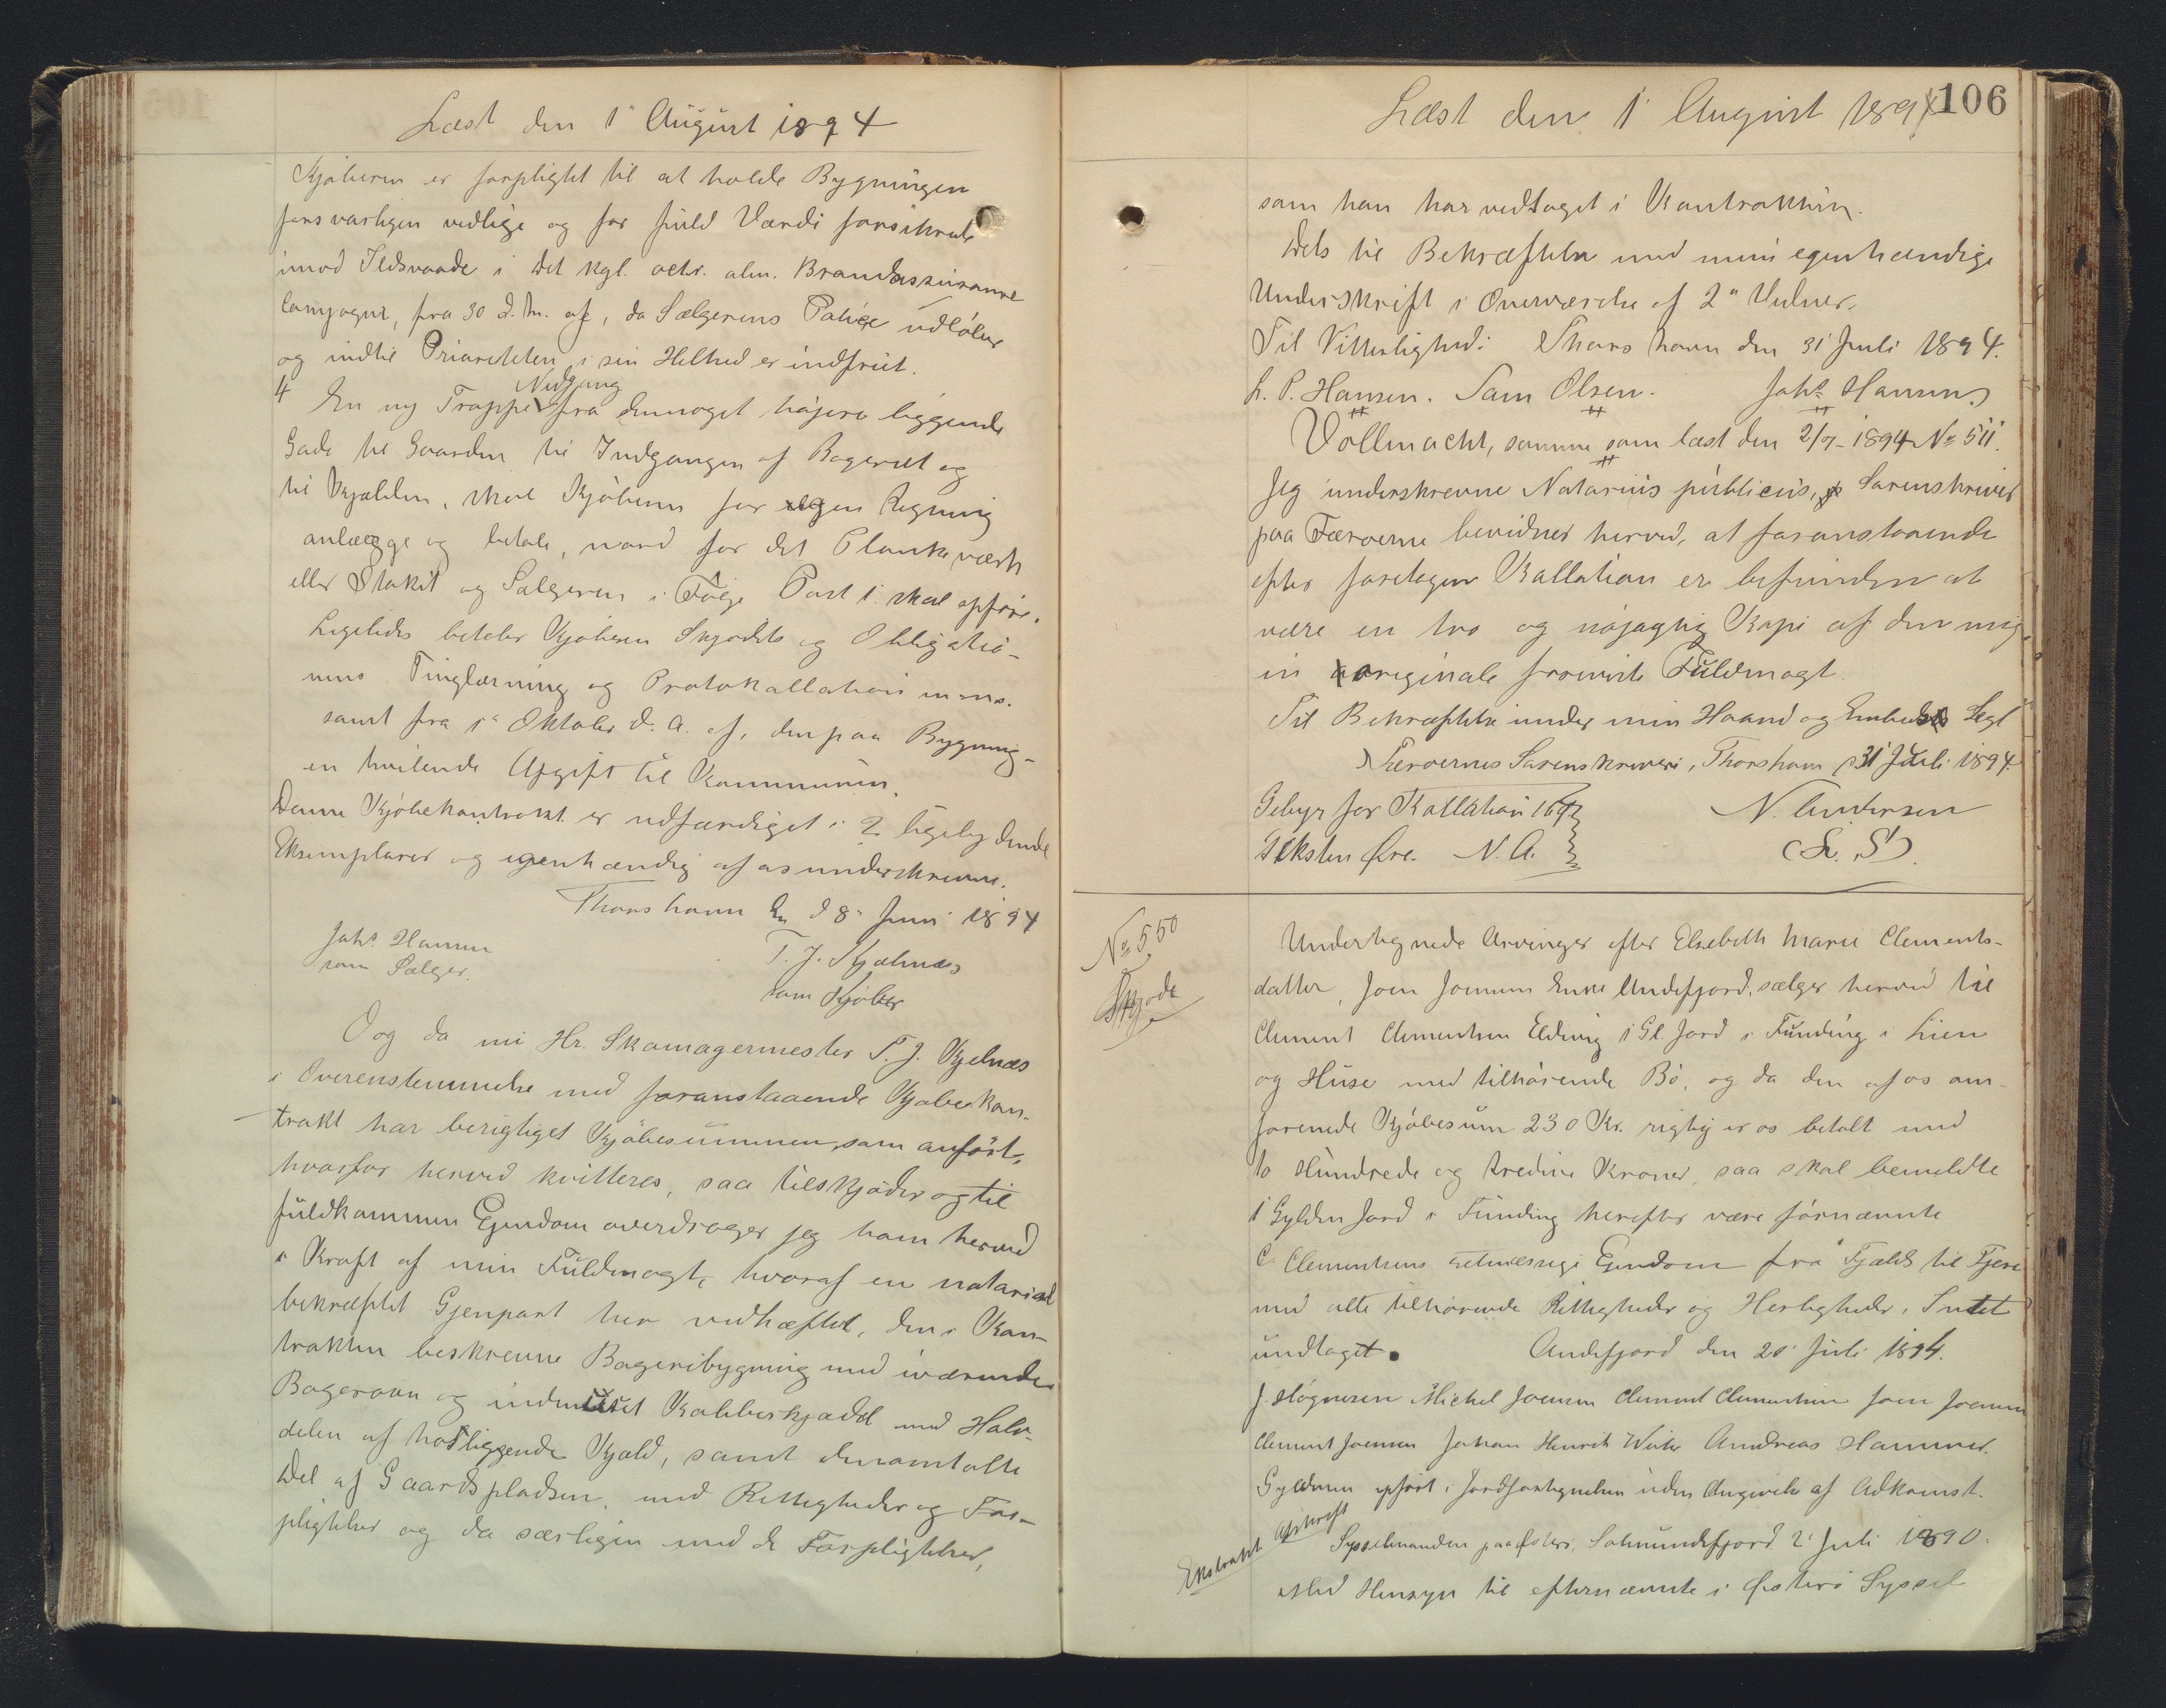 Læst den 1ste August 1894
Kjøberen er forpligtet til at holde Bygningen
forsvarligen vedlige og for fuld Værdi forsikrede
imod Ildsvaade i det kgl. octr. alm. Brandassurance
Compagni, fra 30 d. M. af, da Sælgerens Police udløber
og indtil Prioriteten i sin Helhed er indfriet.
4 En ny Trappe Nedgang fra den noget højere liggende
Gade til Gaarden til Indgangen af Bageriet og
til Kjælderen, skal Kjøberen for egen Regning
anlægge og betale, nord for det Plankeværk
eller Stakit og Sælgeren i Følge Post 1. skal opføre.
Ligeledes betaler Kjøberen Skjødets og Obligatio-
nens Tinglæsning og Protokollation m.m.
samt fra 1ste Oktober d. A. af, den paa Bygning-
en hvilende Afgift til Kommunen.
Denne Kjøbekontrakt er udfærdiget i 2 ligelydende
Eksemplarer og egenhændig af os underskreven.
Thorshavn den 8de Juni 1894
Johs Hansen T. J. Kjølnæs
som Sælger. som Kjøber
Og da nu Hr. Skomagermester T. J. Kjelnæs
i Overensstemmelse med foranstaaende Kjøbekon-
trakt har berigtiget Kjøbesummen, som anført,
hvorfor herved kvitteres, saa tilskjøder og til
fuldkommen Ejendom overdrager jeg ham herved
i Kraft af min Fuldmagt, hvoraf en notarial
bekræftet Gjenpart her vedhæftet, den i Kon-
trakten beskrevne Bageribygning med iværende
Bagerovn og indmuret Kobberkjedel med Halv-
delen af hosliggende Kjæld, samt den omtalte
Del af Gaardspladsen, med Rettigheder og For-
pligtelser og da særligen med de Forpligtelser,
Læst den 1ste August 1894 106
som han har vedtaget i Kontrakten.
Dets til Bekræftelse med min egenhændige
Underskrift i Overværelse af 2de Vidner.
Til Vitterlighed: Thorshavn den 31 Juli 1894.
L. P. Hansen. Sam Olsen. Johs Hansen
Vollmacht, samme som læst den 2/7 1894 No 511.
Jeg underskrevne Notarius publicus, Sorenskriver
paa Færøerne bevidner herved, at foranstaaende
efter foretagen Kollation er befunden at
være en tro og nøjagtig Kopi af den mig
in originale foreviste Fuldmagt.
Til Bekræftelse under min Haand og Embeds Segl
Færøernes Sorenskriveri, Thorshavn 31 Juli 1894.
Gebyr for Kollation 16 N. Andersen
Seksten Øre. N. A. (L. S.)
No 550 Undertegnede Arvinger efter Elsebeth Marie Clements-
Skjøde datter, Joen Joensens Enke Andefjord, sælger herved til
Clement Clementsen Elduvig 1 Gl. Jord i Funding i Lien
og Huse med tilhørende Bø, og da den af os om-
forenede Kjøbesum 230 Kr. rigtig er os betalt med
to Hundrede og tredive Kroner, saa skal bemeldte
1 Gylden Jord i Funding herefter være fornævnte
C. Clementsens retmæssige Ejendom fra Fjæld til Fjære
med alle tilhørende Rettigheder og Herligheder, Intet
undtaget. Andefjord den 20 Juli 1894.
J. Høgnesen Michel Joensen Clement Clementsen Joen Joensen
Clement Joensen Johan Henrik Weihe Andreas Hammer.
Gylden opført i Jordfortegnelsen uden Angivelse af Adkomst.
Ekstrakt Afskrift Sysselmanden paa Østerø, Solmundefjord 2 Juli 1890.
Med Hensyn til efternævnte i Østerø Syssel